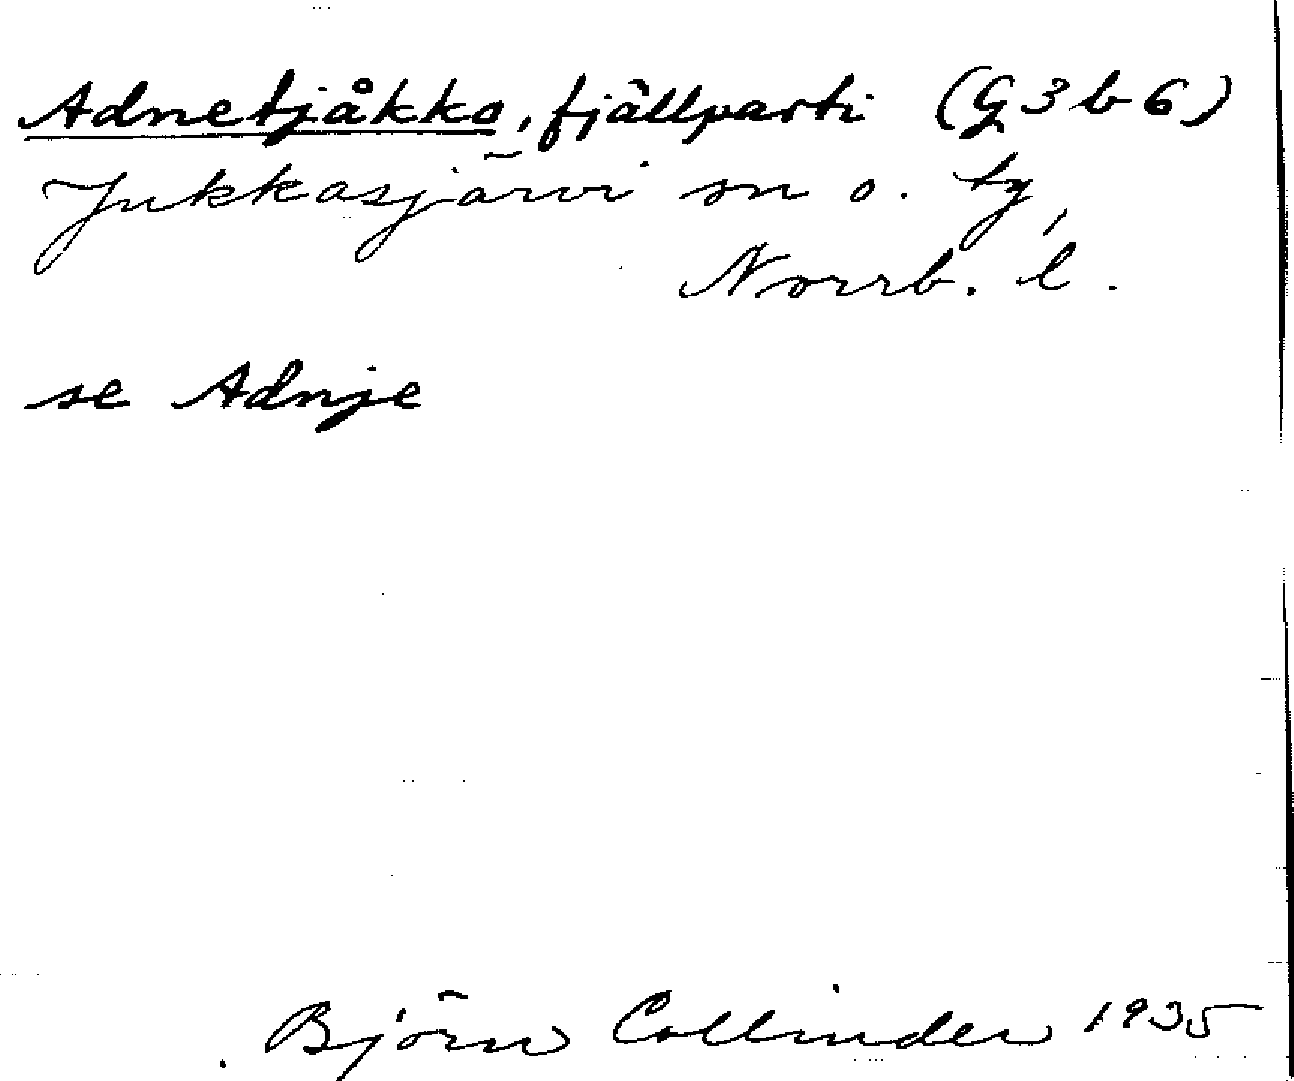 Adnetjåkko, fjällparti (G3b6)
Jukkasjärvi sn o. tg,
Norrb. l.
se Adnje
Björn Collinder 1935